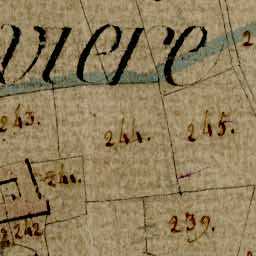 viere
2
243.
244.
245.
241.
239.
242